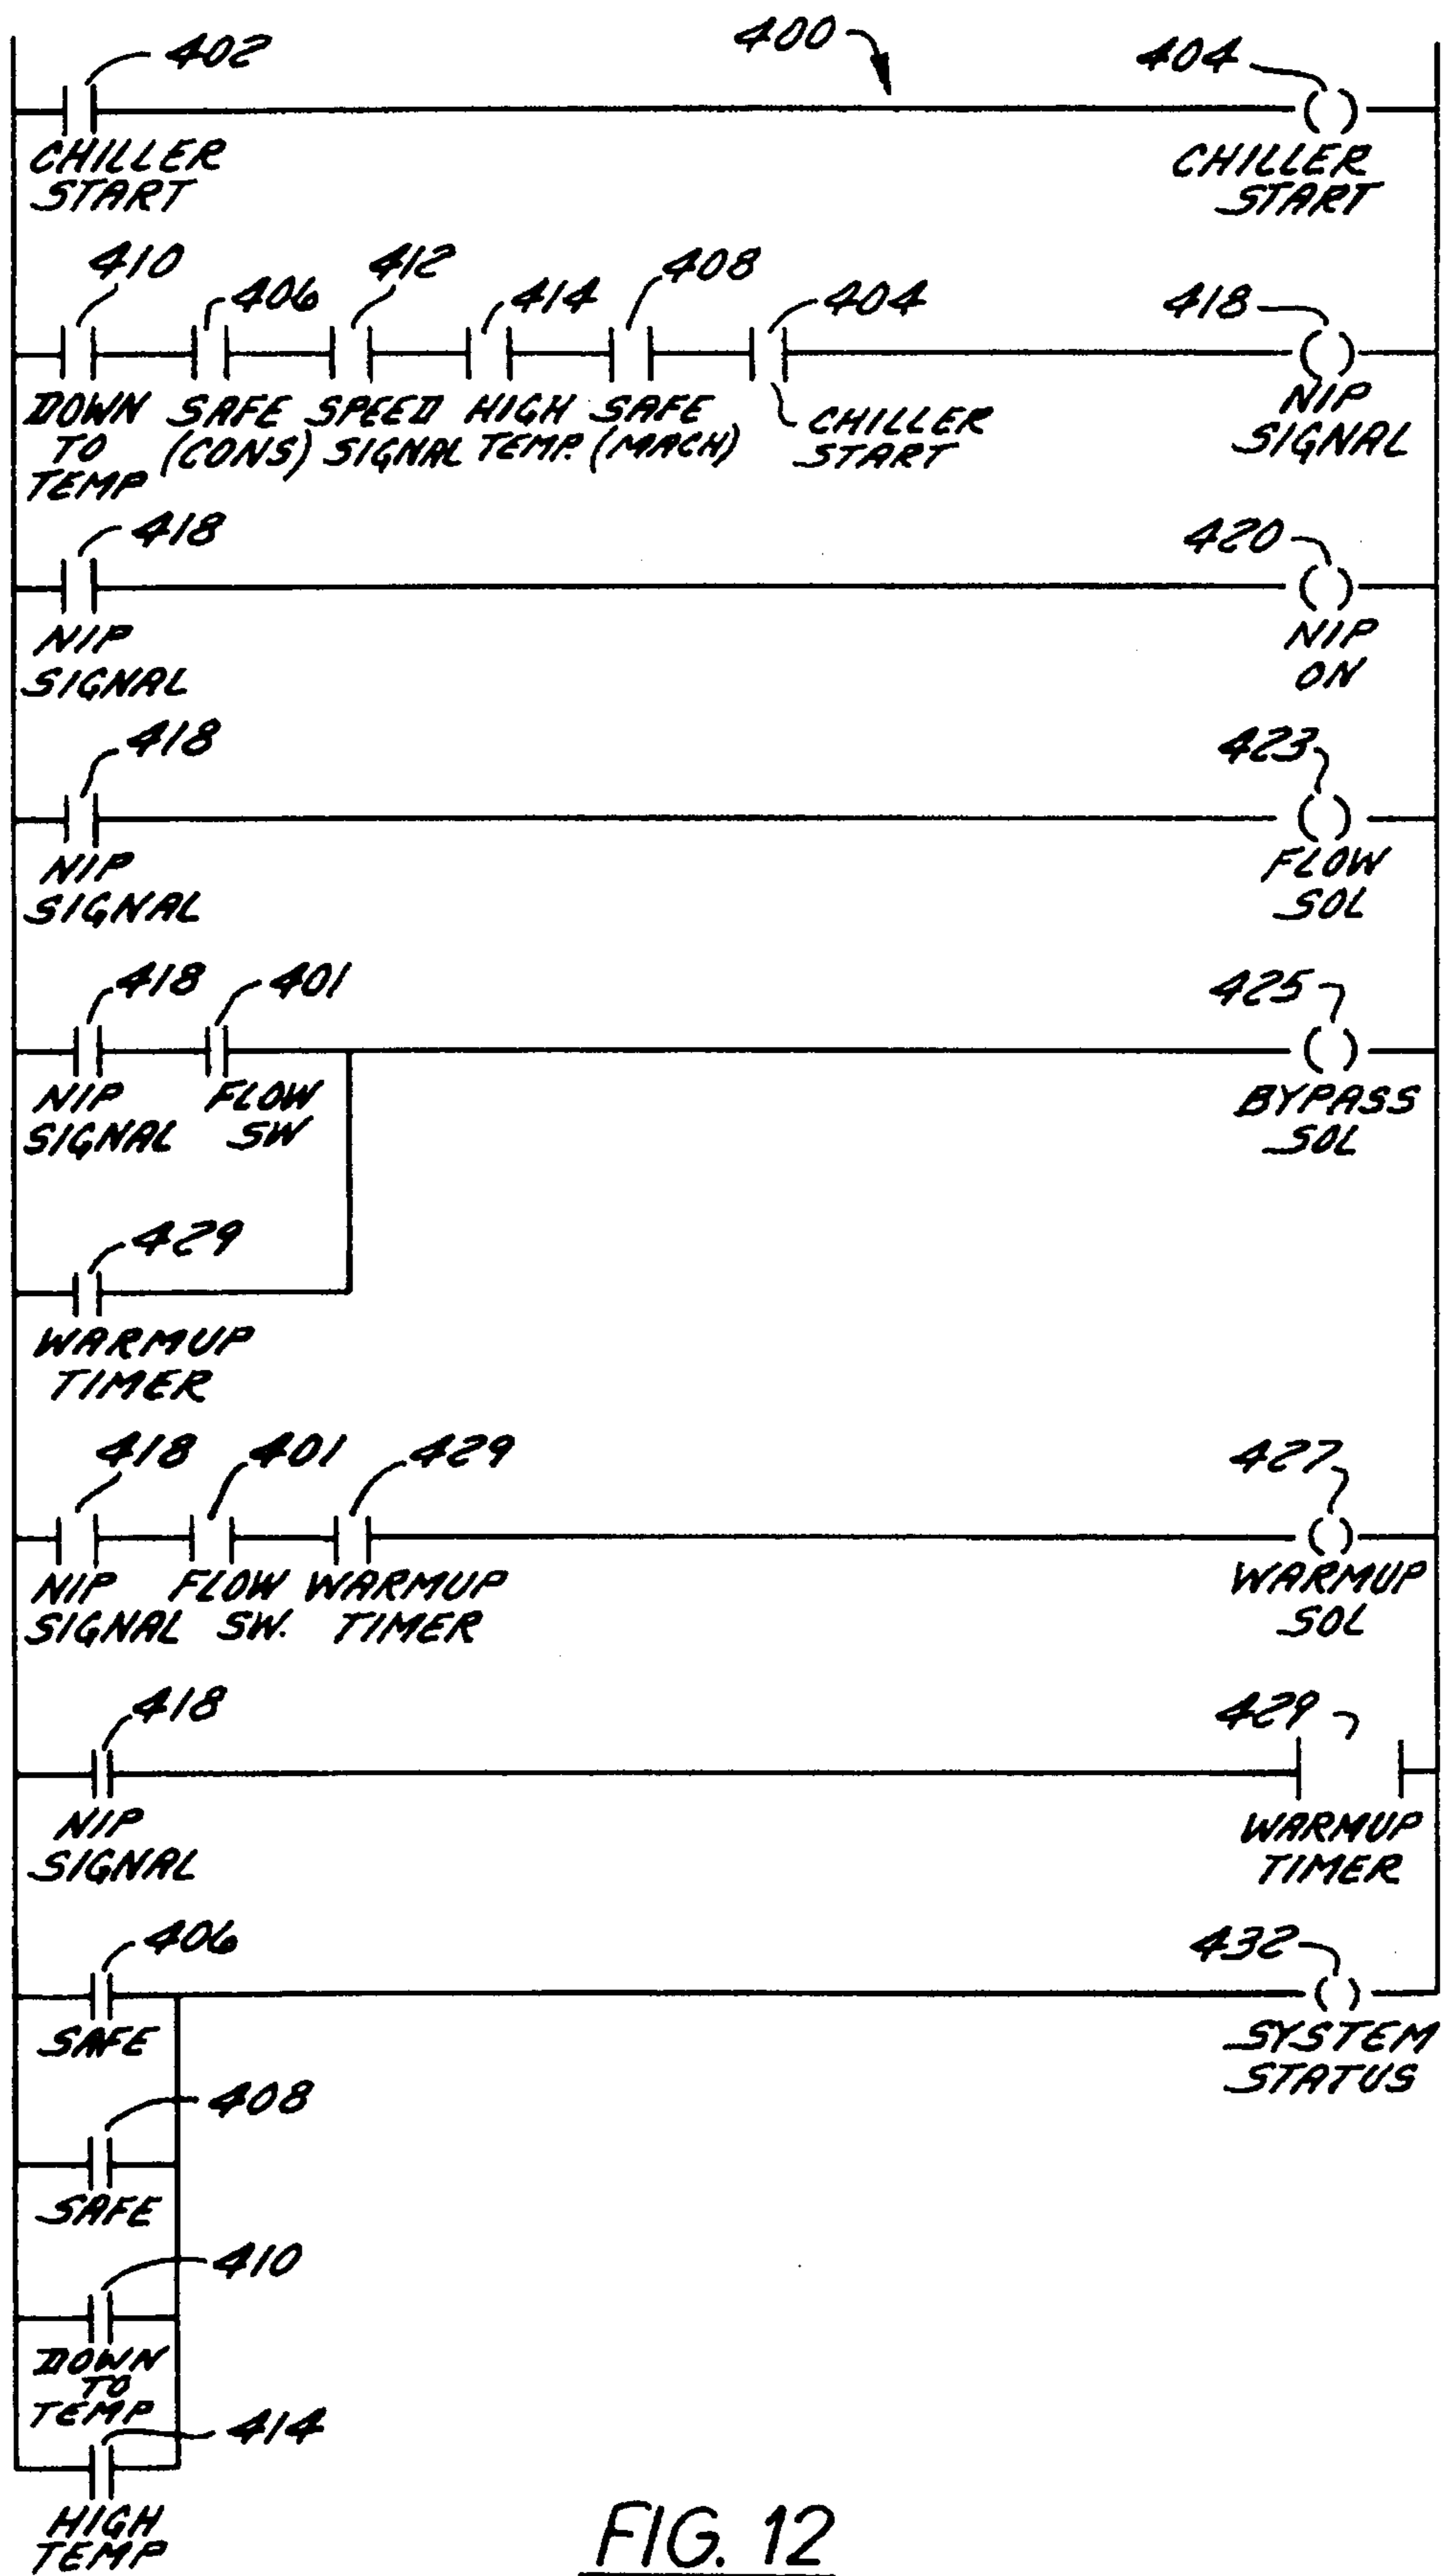 402 400 404
CHILLER START CHILLER START
410 406 412 414 408 404 418
DOWN TO TEMP SAFE (CONS) SPEED SIGNAL HIGH TEMP. SAFE (MACH) CHILLER START NIP SIGNAL
418 420
NIP SIGNAL NIP ON
418 423
NIP SIGNAL FLOW SOL
418 401 425
NIP SIGNAL FLOW SW BYPASS SOL
429
WARMUP TIMER
418 401 429 427
NIP SIGNAL FLOW SW. WARMUP TIMER WARMUP SOL
418 429
NIP SIGNAL WARMUP TIMER
406 432
SAFE SYSTEM STATUS
408
SAFE
410
DOWN TO TEMP
414
HIGH TEMP
FIG. 12